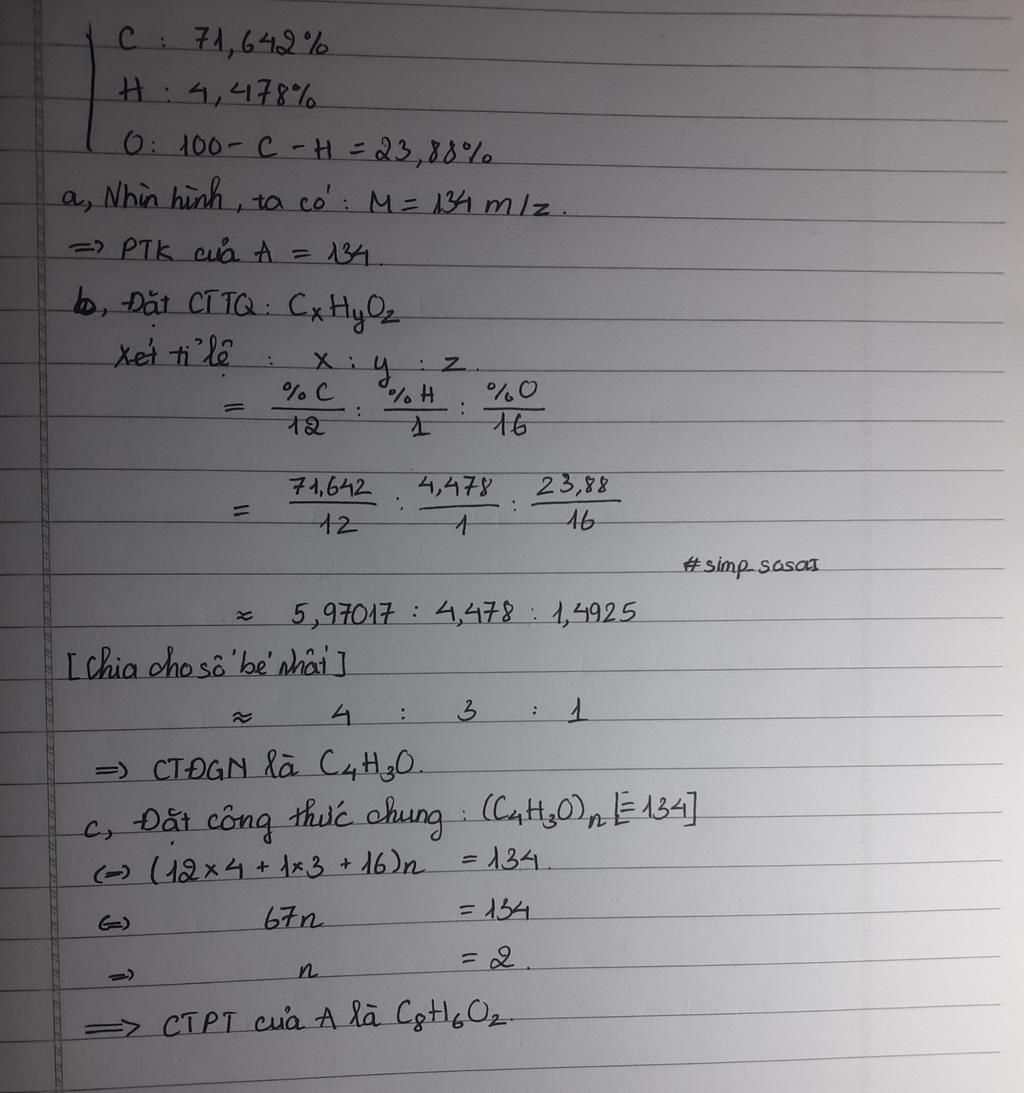 C : 71,642%
H : 4,478%
O: 100 - C - H = 23,88%
a, Nhìn hình, ta có : M = 134 m/z.
=> PTK của A = 134.
b, Đặt CTTQ: CₓHᵧO₂
Xét tỉ lệ : x : y : z.
= %C/12 : %H/1 : %O/16
= 71,642/12 : 4,478/1 : 23,88/16
#simp_sasaz
≈ 5,97017 : 4,478 : 1,4925
[Chia cho số bé nhất]
≈ 4 : 3 : 1
=> CTĐGN là C₄H₃O.
c, Đặt công thức chung : (C₄H₃O)ₙ [= 134]
(=) (12×4 + 1×3 + 16)n = 134.
(=) 67n = 134
=> n = 2.
=> CTPT của A là C₈H₆O₂.